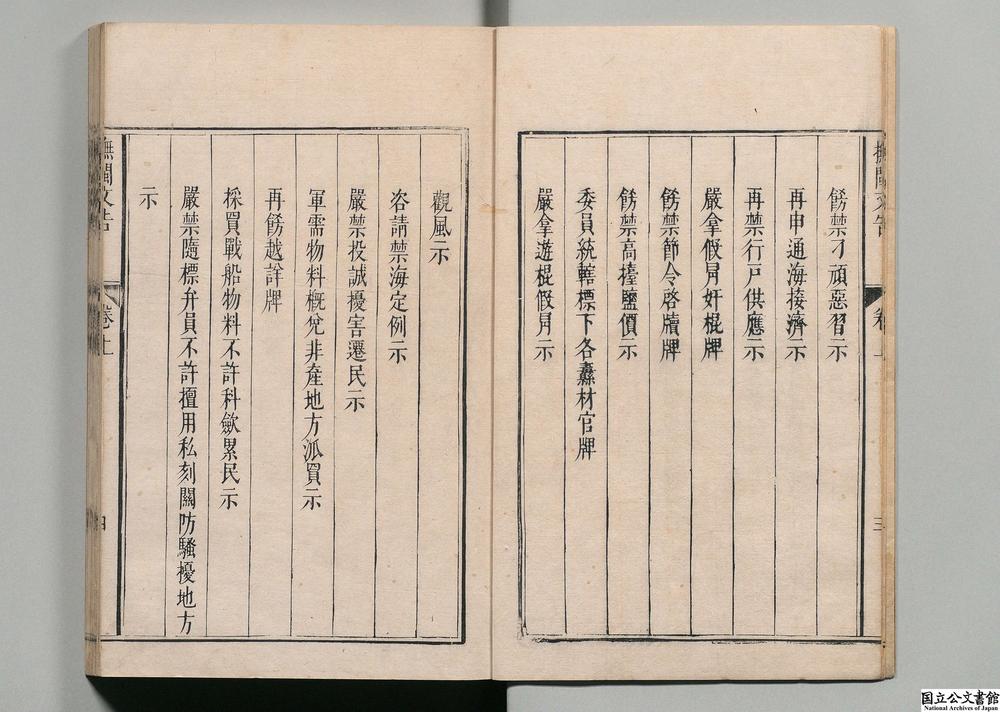 飭禁刁頑惡習示
再申通海接濟示
再禁行戸供應示
嚴拿假冐奸棍牌
飭禁節令啓牘牌
飭禁高擡鹽價示
委員統轄標下各纛材官牌
嚴拿遊棍假冐示
撫閩文告
卷上
三
觀風示
咨請禁海定例示
嚴禁投誠擾害遷民示
軍需物料槪免非產地方派買示
再飭越訴牌
採買戰船物料不許科歛累民示
嚴禁隨標弁員不許擅用私刻關防騷擾地方
示
撫閩文告
卷上
四
国立公文書館
National Archives of Japan